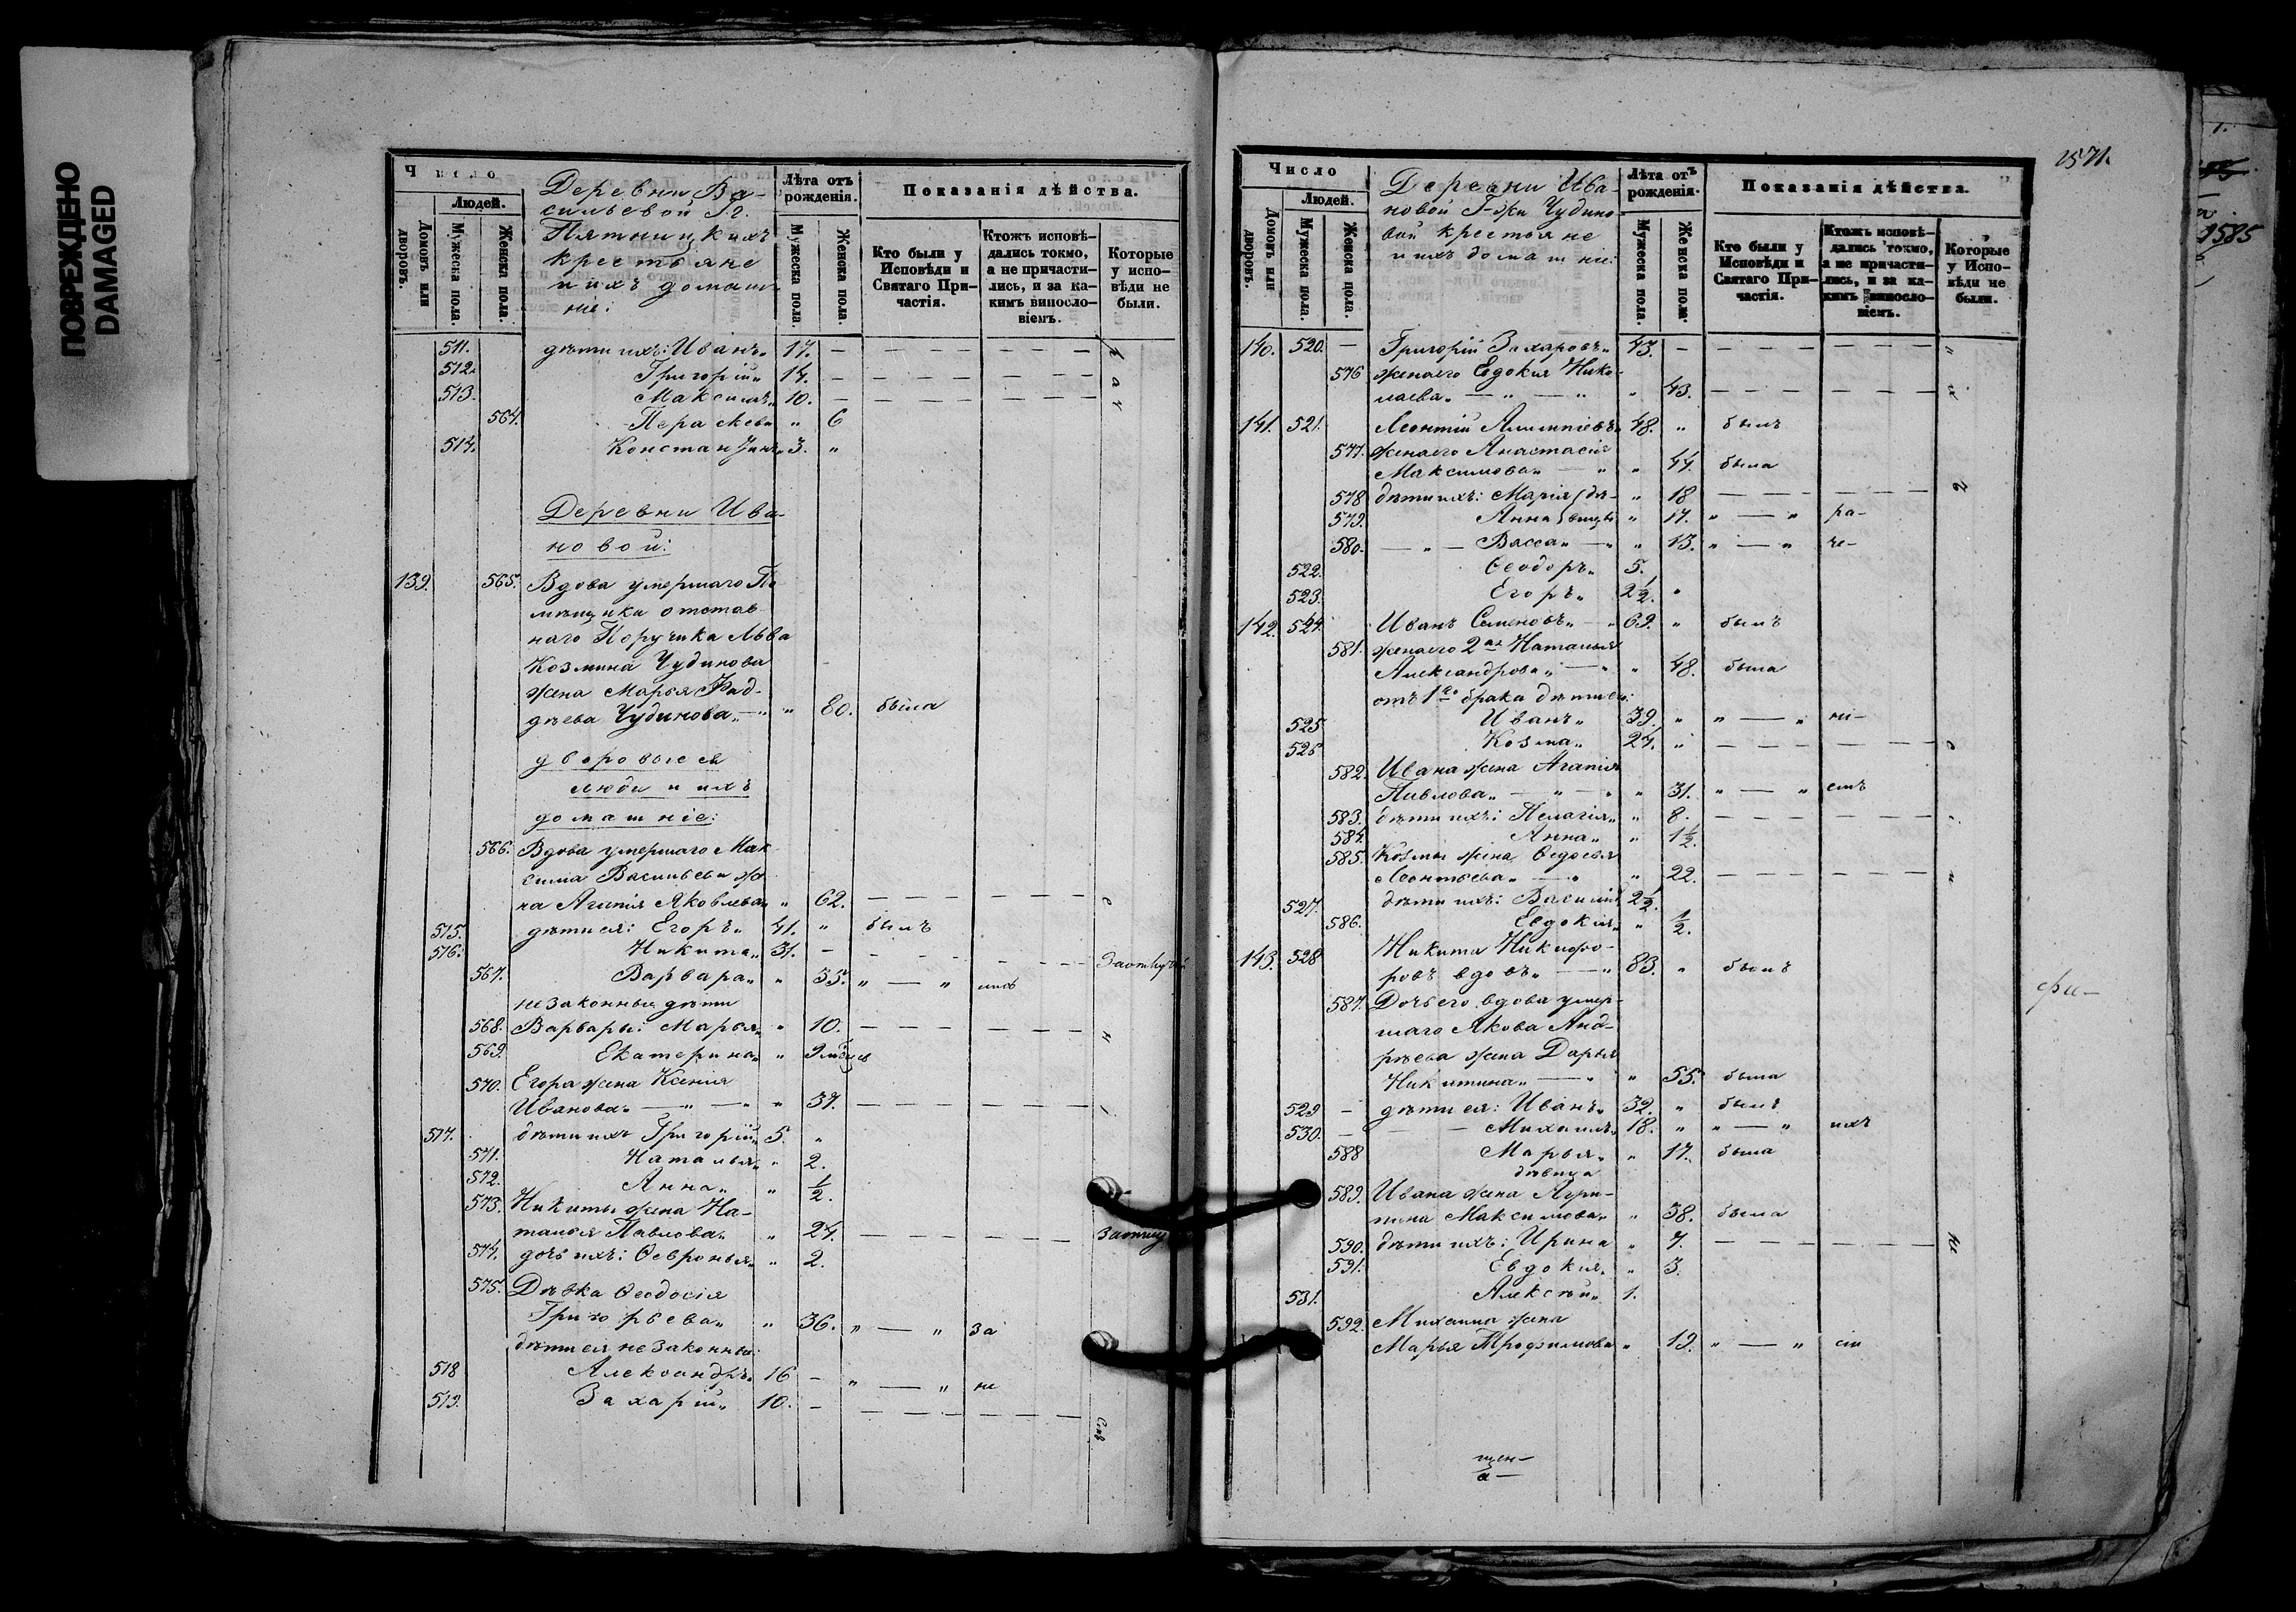 ПОВРЕЖДЕНО
DAMAGED
Число
Людей.
Домовъ или дворовъ.
Мужеска пола.
Женска пола.
Деревни Ва-
сильевой Г.г.
Пятницкихъ
крестьяне
и ихъ домаш
ніе:
Лѣта отъ рожденія.
Мужеска пола.
Женска пола.
Показанія дѣйства.
Кто были у Исповѣди и Святаго При-частія.
Ктожъ исповѣ-дались токмо, а не причасти-лись, и за ка-кимъ винословіемъ.
Которые у испо-вѣди не были.
511. дѣти ихъ: Иванъ 17. —
512. Григорій 14. —
513. Максимъ 10. —
564. Параскева " 6
514. Константинъ 3. "
Деревни Ива-
новой:
139. 565. Вдова умершаго По
мѣщика отстав
наго Поручика Льва
Козмина Чудинова
жена Марья Фад-
дѣева Чудинова " 80. была
дворовые ея
люди и ихъ
домашніе:
566. Вдова умершаго Мак
сима Васильева же
на Агапія Яковлева " 62. —
515. дѣти ея: Егоръ 41. " былъ
516. Никита 31. —
567. Варвара " 35. " — "
незаконныя дѣти
568. Варвары: Марья " 10. —
569. Екатерина " 9
570. Егора жена Ксенія
Иванова " 37. —
517. дѣти ихъ Григорій 5. "
571. Наталья " 2.
572. Анна " 1/2.
573. Никиты жена На-
талья Павлова " 24. —
574. дочь ихъ: Ѳевронья " 2.
575. Дѣвка Ѳеодосія
Григорьева " 36. " — " за
дѣти ея незаконные:
518 Александръ 16 — " — " не
519. Захарій 10. —
1571.
Число
Людей.
Домовъ или дворовъ.
Мужеска пола.
Женска пола.
Деревни Ива-
новой Г-жи Чудино-
вой крестьяне
и ихъ домашніе:
Лѣта отъ рожденія.
Мужеска пола.
Женска пола.
Показанія дѣйства.
Кто были у Исповѣди и Святаго При-частія.
Ктожъ исповѣ-дались токмо, а не причасти-лись, и за ка-кимъ винословіемъ.
Которые у Испо-вѣди не были.
140. 520. — Григорій Захаровъ 43. —
576 жена его Евдокія Нико-
лаева " 43. —
141. 521. Леонтій Алимпіевъ 48. " былъ
577. жена его Анастасія
Максимова " 44. была
578 дѣти ихъ: Марія (дѣ- " 18 —
579. Анна (вицы " 17. " — " ра-
580. Васса " 13. " — " че-
522. Ѳеодоръ 5.
523. Егоръ 2 1/2. "
142. 524. Иванъ Семеновъ 69. " былъ
581. жена его 2ая Наталья
Александрова " 48. была
отъ 1го брака дѣти ея:
525 Иванъ 39. " " — " ни-
526 Козма 24. " —
582. Ивана жена Агапія
Павлова " 31. " — " емъ
583. дѣти ихъ: Пелагія " 8. —
584. Анна " 1 1/2.
585. Козмы жена Ѳедосья
Леонтьева " 22. —
527. дѣти ихъ: Василій 2 1/2.
586. Евдокія " 1/2.
143. 528 Никита Никифо-
ровъ вдовъ 83. " былъ
587. Дочь его вдова умер-
шаго Якова Анд-
рѣева жена Дарья
Никитина " 55. была
529 — дѣти ея: Иванъ 32. " былъ
530. — Михаилъ 18. " " — " ихъ
588 Марья " 17. была
дѣвица
589. Ивана жена Агри-
пина Максимова " 38. была
590. дѣти ихъ: Ирина " 7. —
591. Евдокія " 3.
531. Алексѣй 1.
592. Михаила жена
Марья Трофимова " 19. " — "
щен-
1585